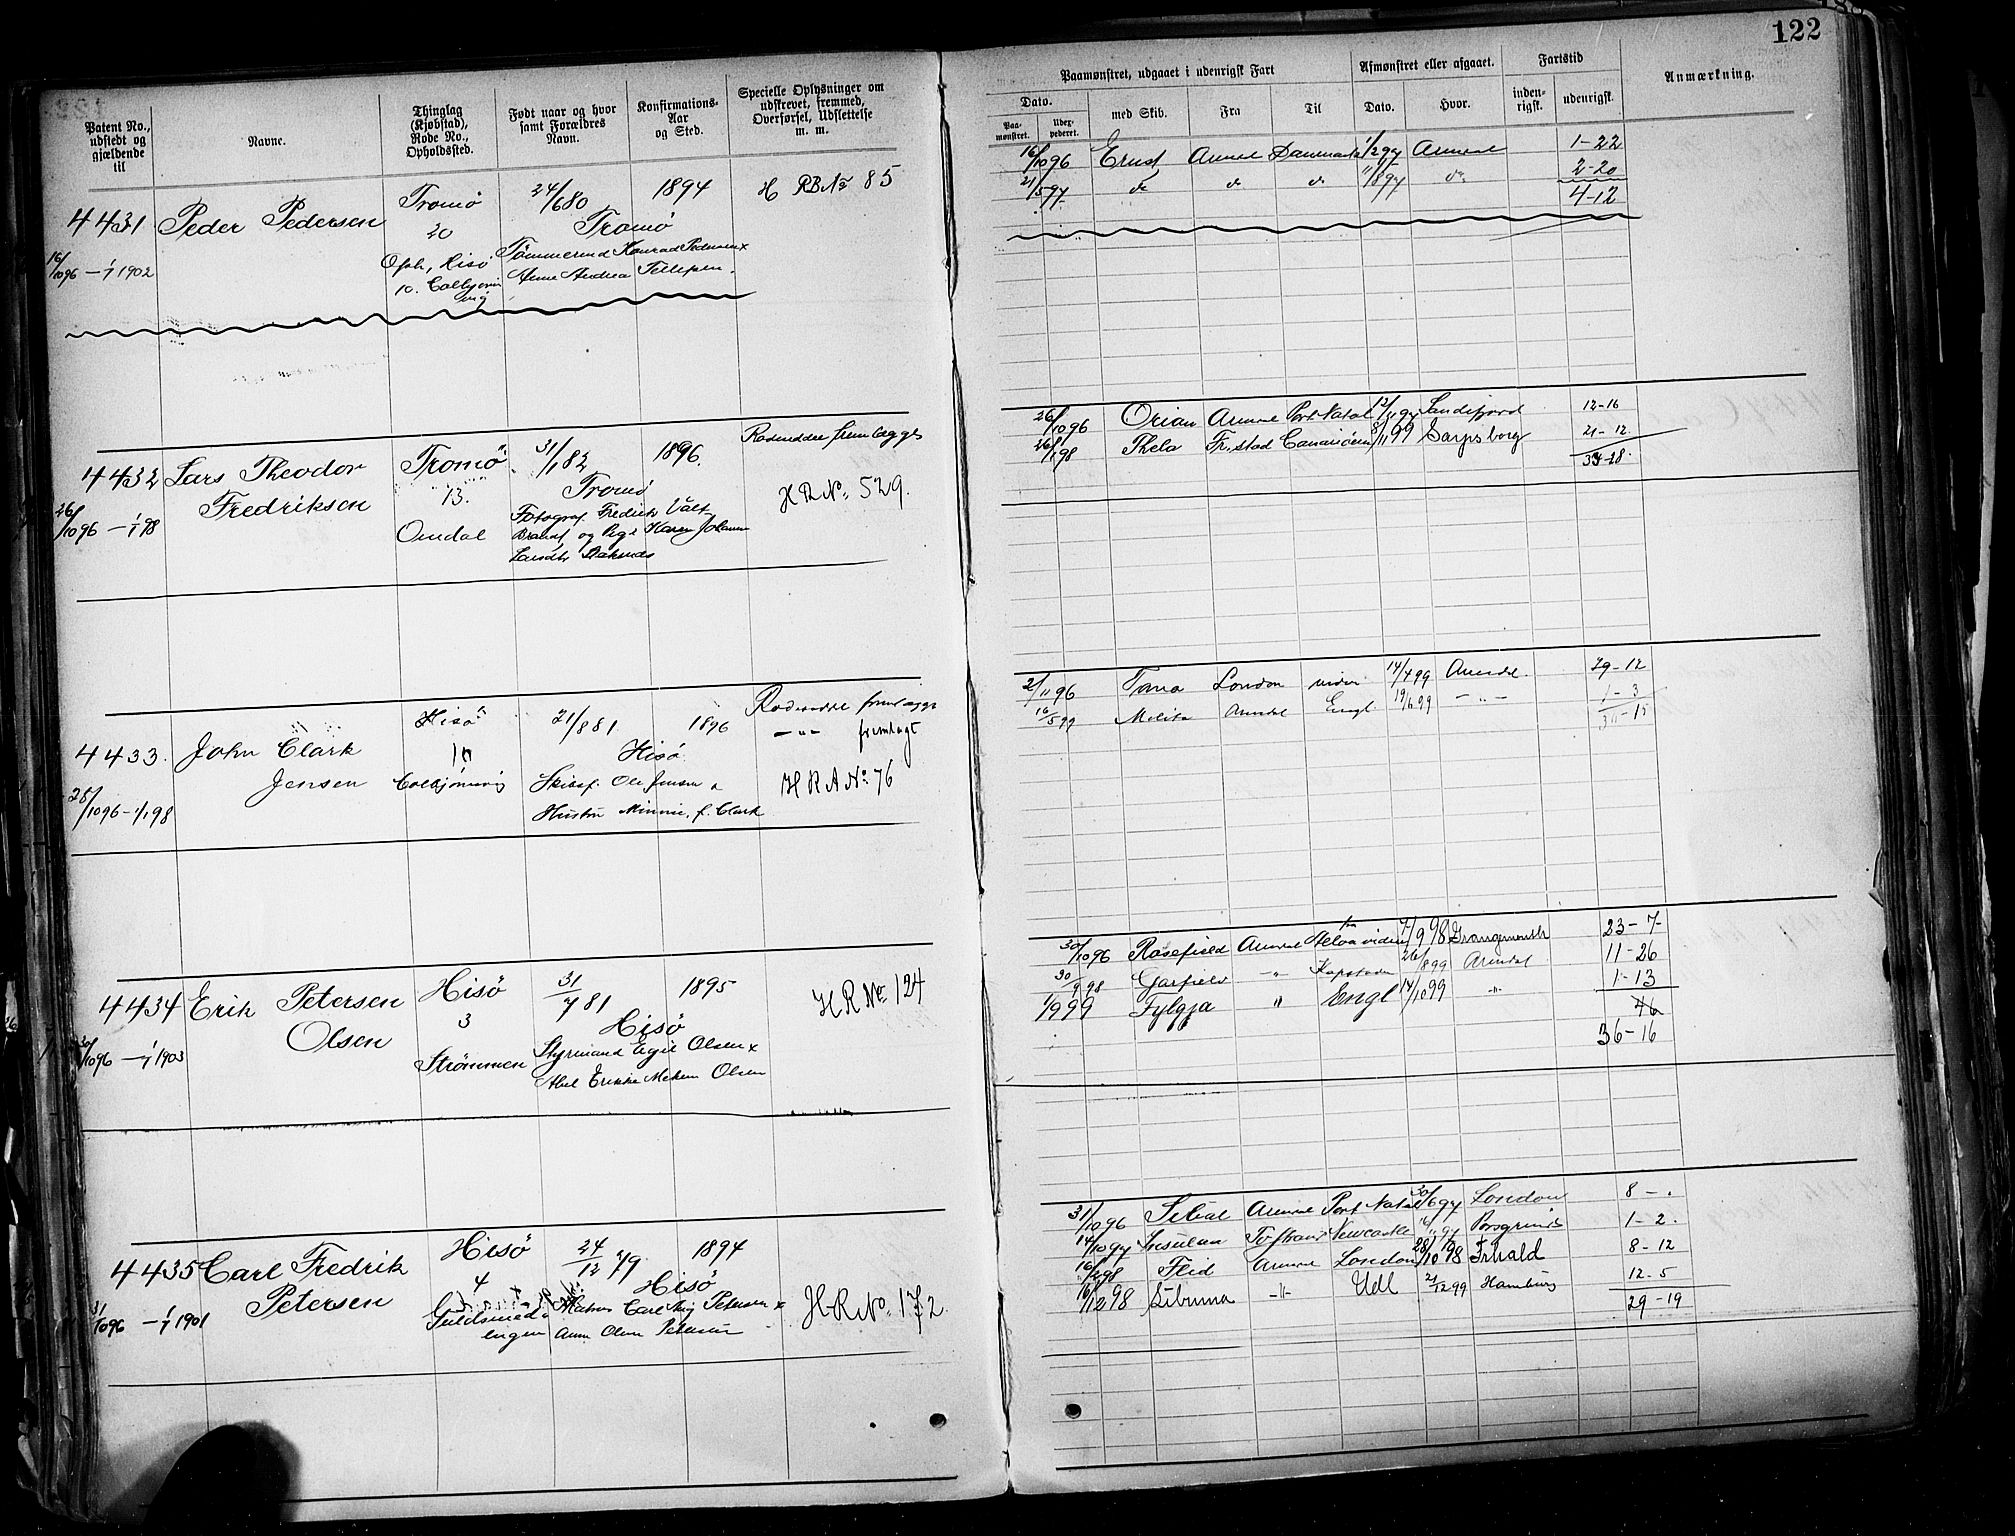 122
Patent No., udstedt og gjældende til
Navne.
Thinglag (Kjøbstad), Rode No., Opholdssted.
Født naar og hvor samt Forældres Navn.
Konfirmations- Aar og Sted.
Specielle Oplysninger om udskrevet, fremmed, Overførsel, Udslettelse m. m.
Paamønstret, udgaaet i udenrigsk Fart
Afmønstret eller afgaaet.
Fartstid
Anmærkning.
Dato.
med Skib.
Fra
Til
Dato.
Hvor.
inden- rigsk.
udenrigsk.
Paa- mønstret.
Udex- pederet.
4431 Peder Pedersen
16/10 96 — 1/1 1902
Tromø
20
Oph. Hisø
10. Colbjørns
vig
24/6 80 1894
Tromø
Tømmermd Konrad Pedersen x
Anne Andrea Tellefsen.
H RB No 85
16/10 96 Ernst Arendal Danmark 1/2 97 Arendal 1-22
21/5 97 do do do 11/8 97 do 2-20
4-12
4432 Lars Theodor
Fredriksen
26/10 96 — 1/1 98
Tromø
13.
Omdal
31/1 82 1896.
Tromø
Fotograf Fredrik Valt
Brandt og Pige Karen Johanne
Rodeseddel fremlægges
H R No. 529.
26/10 96 Orion Arendal Port Natal 12/11 97 Sandefjord 12-16
26/1 98 Thela Fr.stad 8/11 99 Sarpsborg 21-12
4433. John Clark
Jensen
28/10 96 - 1/1 98
Hisø
10
Colbjørnsvig
21/8 81 1896
Hisø
Skibsf. Ole Jensen &
Hustru Minnie, f. Clark
Rodeseddel fremlægges
— „ — fremlagt
H R A No. 76
2/11 96 Toma London viden 14/4 99 Arendal. 29-12
16/5 99 Melita Arendal Engl. 19/6 99 — „ — 1-3
4434 Erik Petersen
Olsen
30/10 96 — 1/1 1903
Hisø
3
Strømmen
31/7 81 1895
Hisø
Styrmand Egil Olsen x
Olsen
H R No. 124
30/10 96 Rosefield Arendal viden 7/9 98 Grangemouth 23-7
30/9 98 Garfield — „ — Kapstaden 26/8 99 Arendal 11-26
1/9 99 Fylgja „ Engl 14/10 99 — „ — 1-13
36-16
4435 Carl Fredrik
Petersen
31/10 96 — 1/1 1901
Hisø
4
Guldsmed
engen
24/12 79 1894
Hisø
Matros Carl Petersen x
Anne Olene Petersen
H R No. 172.
31/10 96 Arendal Port Natal 30/6 97 London 8 - .
14/10 97 Newcastle Porsgrund 1-2.
16/2 98 Arendal London 28/10 98 Frhald 8-12
16/12 98 — „ — Udl 21/12 99 Hamburg 12-5
29-19